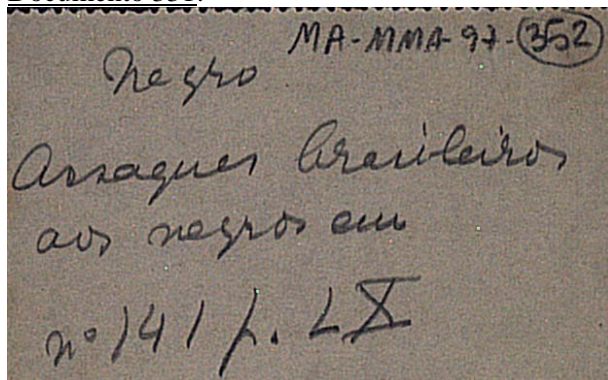 MA-MMA-97-352
Negro
Assaques brasileiros
aos negros em
nº 141 p. LX